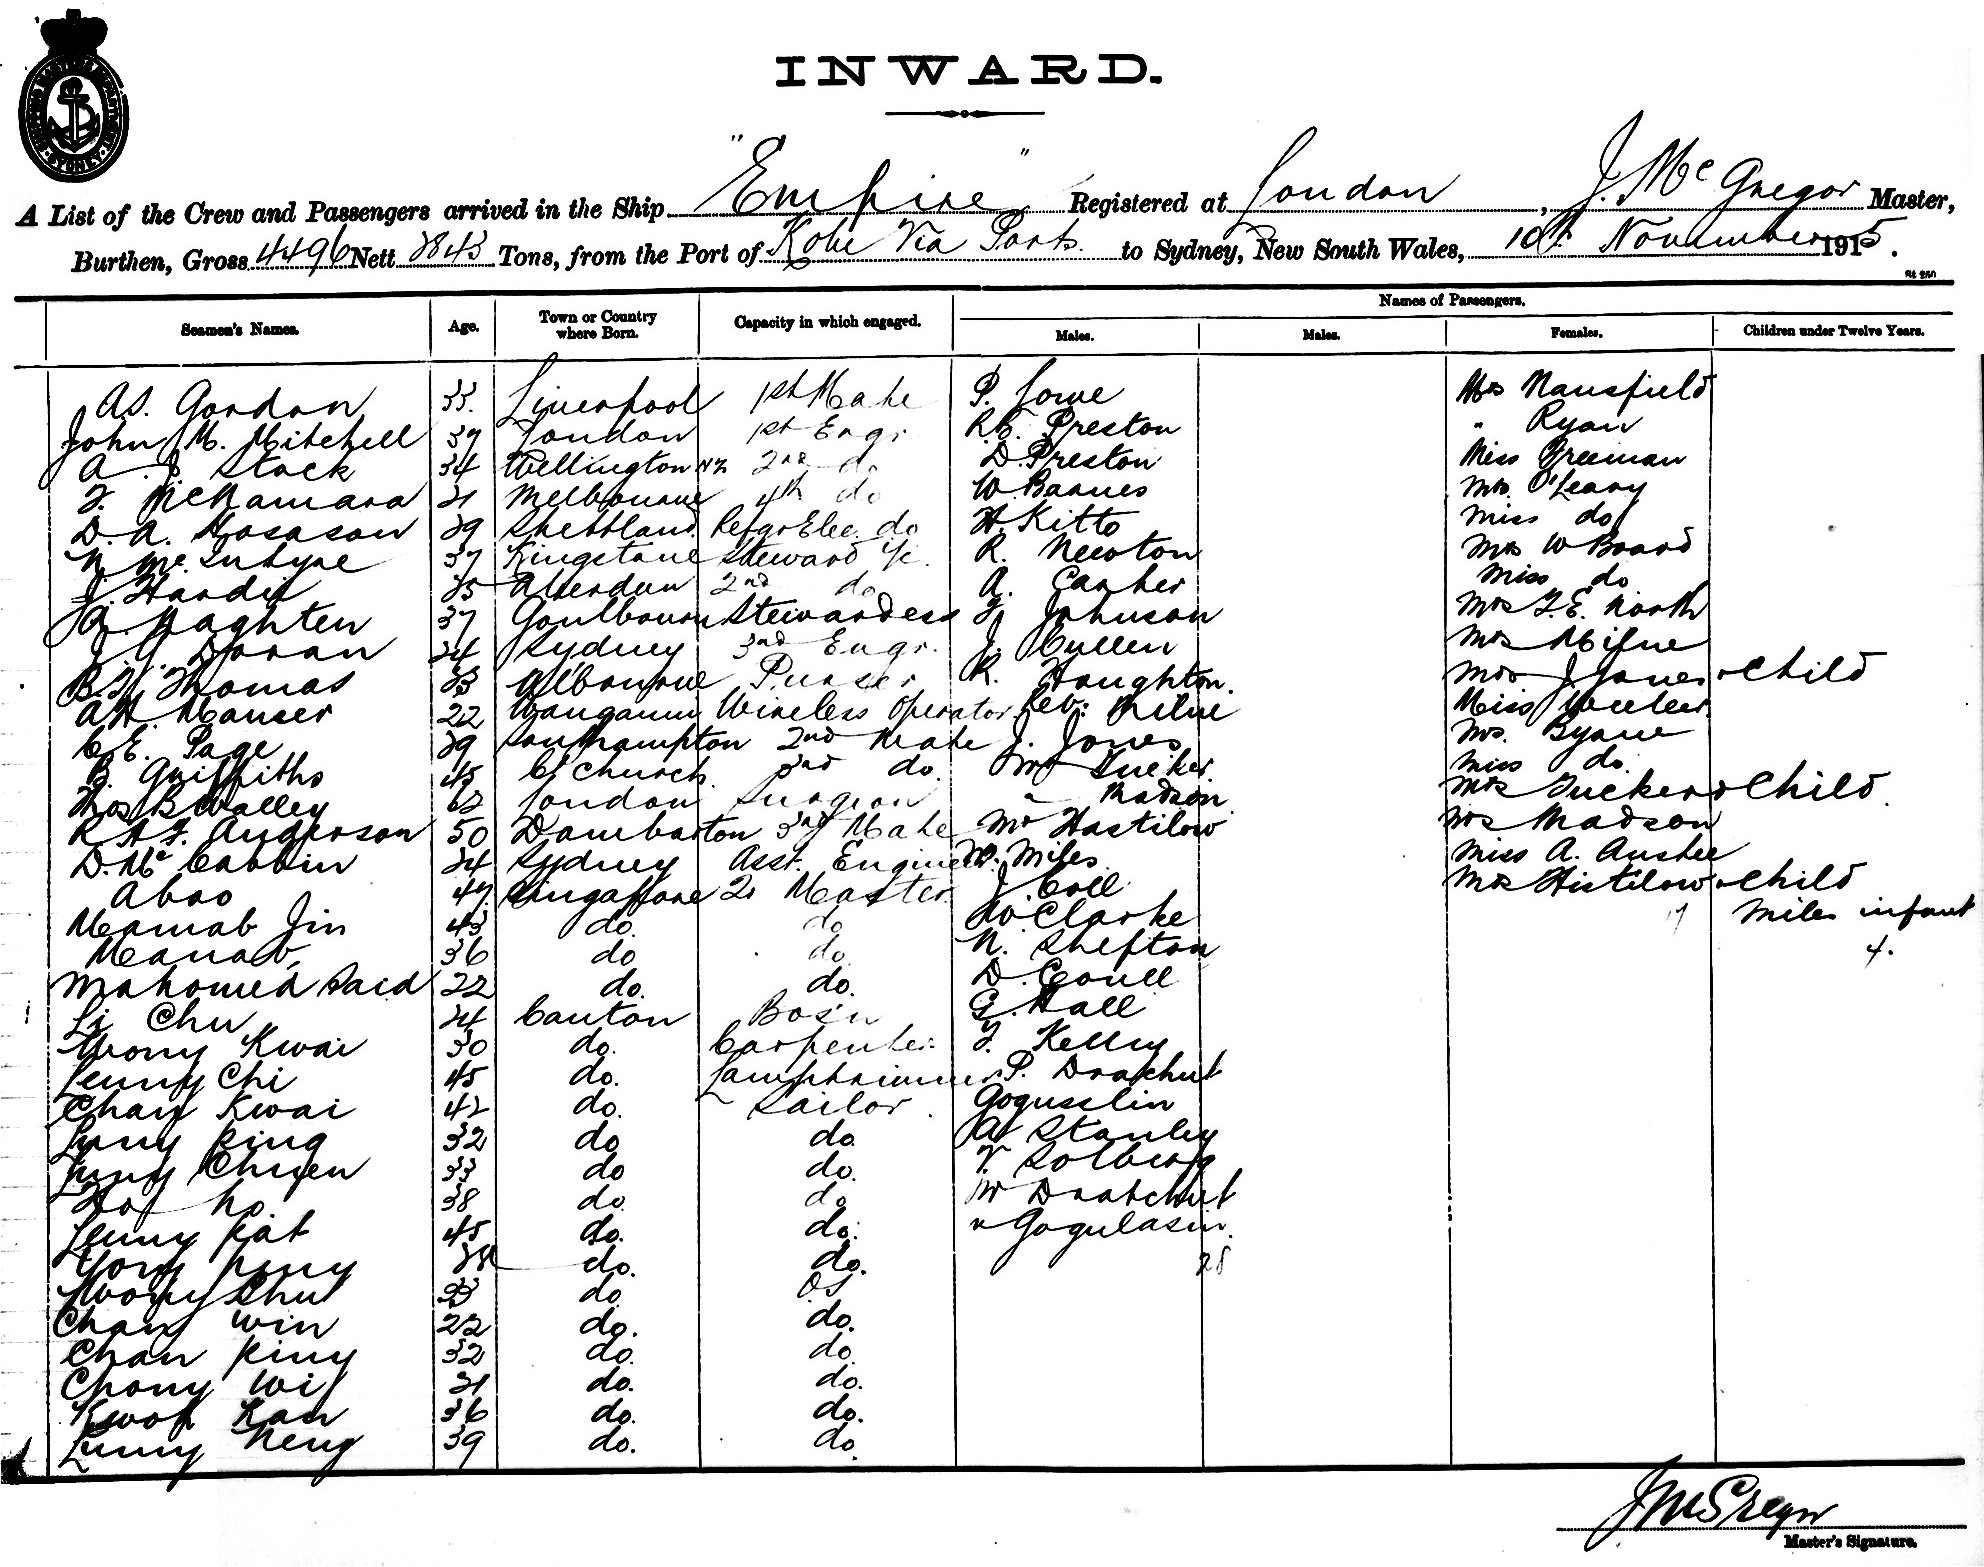 SHIPPING MASTER'S DEPARTMENT SYDNEY
INWARD.
A List of the Crew and Passengers arrived in the Ship "Empire" Registered at London, J. McGregor Master,
Burthen, Gross 4496 Nett 2843 Tons, from the Port of Kobe Via Ports. to Sydney, New South Wales, 10th November 1915.
Names of Passengers.
Seamen's Names. Age. Town or Country where Born. Capacity in which engaged. Males. Males. Females. Children under Twelve Years.
A.S. Gordon 33. Liverpool 1st Mate P. Lowe Mrs Mansfield
John M. Mitchell 37 London 1st Engr R.E. Preston " Ryan
A. Stack 34 Wellington NZ 2nd do D. Preston Miss Freeman
F. McNamara 21 Melbourne 4th do W. Barnes Mrs. O'Leary
D. A. Hosason 29 Shettland Refgr Elec. do H. Kitto Miss do
N. McIntyre 37 Kingstone Steward R. Newton Mrs W Board
J. Hardie 25 Aberdeen 2nd do A. Miss do
A. Naghten 37 Goulbourn Stewardess F. Johnson Mrs F.E. North
J. Doran 24 Sydney 3rd Engr. J. Cullen Mrs Milne
B.H. Thomas 23 Purser R. Houghton. Mrs J. Jones & Child
A.H. Manser 22 Wanganui Wireless Operator Rev: Milne Miss
C.E. Page 29 Southampton 2nd Mate J. Jones Mrs. Byrne
B. Griffiths 45 Ch Church 3rd do. Mr Tucker. Miss do.
Thos B. Walley 62 London Surgeon " Madson Mrs Tucker & Child.
R.A.F. Anderson 50 Dumbarton 3rd Mate Mr Hastilow Mrs Madson
D. McCabbin 24 Sydney Asst. Engineer W. Miles Miss A. Anstee
Aboo 47 Singapore Qr Master J. Coll Mrs Hastilow & Child
Mamab Jin 43 do. do W. Clarke 17 Miles infant
Manab, 36 do do. N. Shefton 4.
Mahomed Said 22 do. do. D. Coull
Li Chu 24 Canton Bos'n G. Hall
Wong Kwai 30 do. Carpenter F. Kelly
Leung Chi 45 do. Lamptrimmer P. Drakhut
Chan Kwai 42 do. Sailor. Gogusslin
Lung King 32 do do A. Stanley
Lung Chuen 33 do do. V. Solberg
Ho. 38 do. do Mr Dratchut
Leung Kat 45 do. do. " Gogulasin.
Wong 28 do. do. 28
Wong Shui 23 do OS
Chan Win 22 do. do.
Chan King 32 do. do
Chong Wi 21 do. do.
Kwok Kan 36 do. do.
Leung Neng 39 do. do.
J McGregor
Master's Signature.